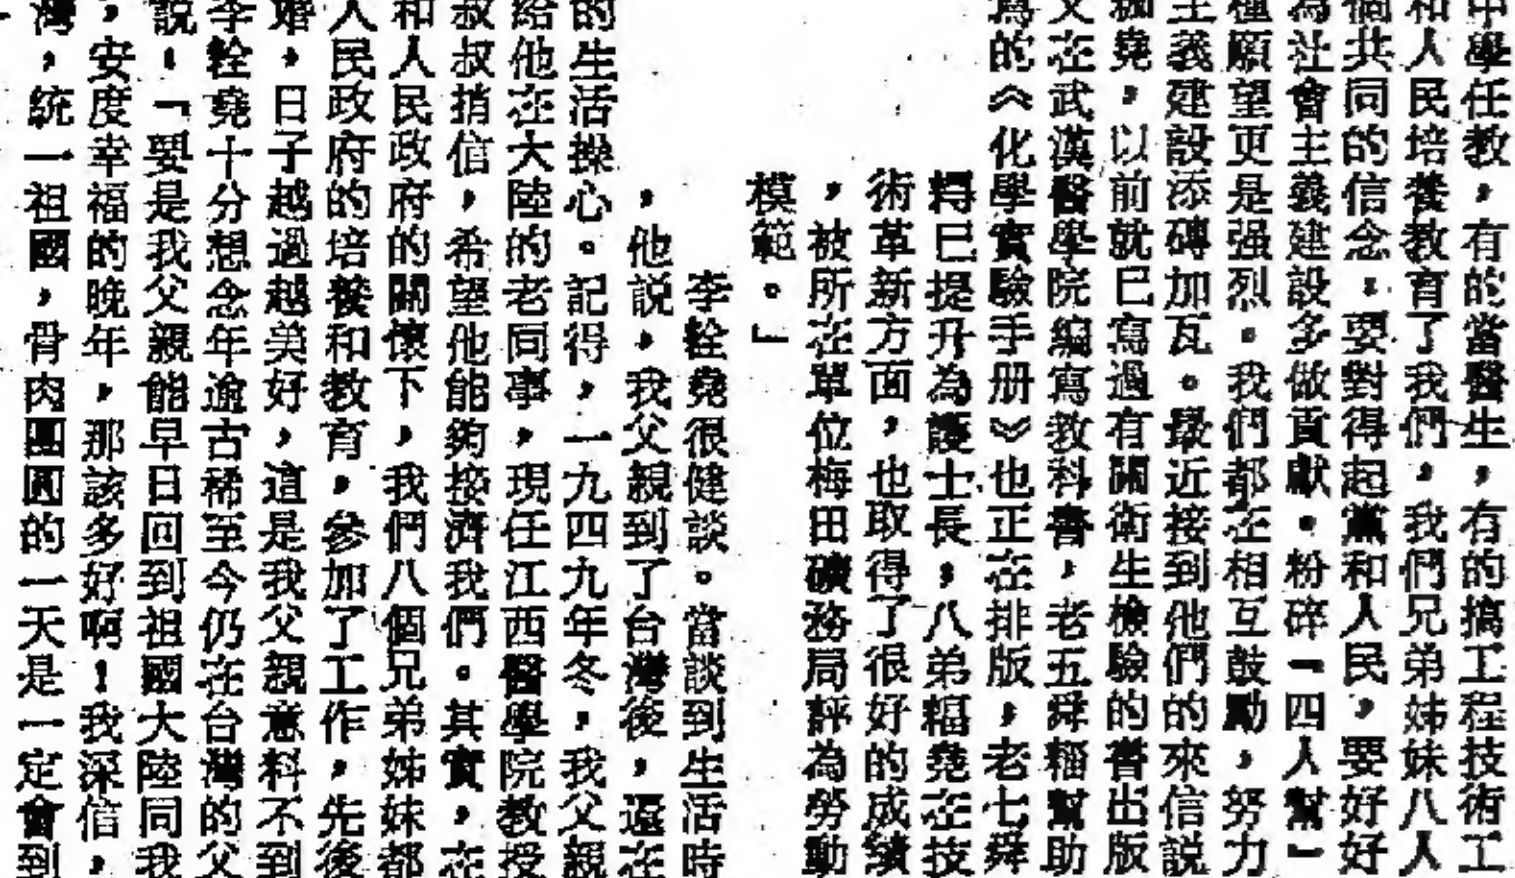 中學任教，有的當醫生，有的搞工程技術工
和人民培養教育了我們，我們兄弟姊妹八人
個共同的信念：要對得起黨和人民，要好好
為社會主義建設多做貢獻。粉碎「四人幫」
種願望更是强烈。我們都在相互鼓勵，努力
主義建設添磚加瓦。最近接到他們的來信説
堯，以前就已寫過有關衛生檢驗的書出版
又在武漢醫學院編寫教科書，老五舜輻幫助
爲的《化學實驗手册》也正在排版，老七舜
已提升為護士長，八弟輻堯在技
術革新方面，也取得了很好的成績
，被所在單位梅田礦務局評為勞動
模範。」
李銓堯很健談。當談到生活時
，他説，我父親到了台灣後，還在
的生活操心。記得，一九四九年冬，我父親
給他在大陸的老同事，現任江西醫學院教授
叔叔捎信，希望他能夠接濟我們。其實，在
和人民政府的關懷下，我們八個兄弟姊妹都
人民政府的培養和教育，參加了工作，先後
婚，日子越過越美好，這是我父親意料不到
李銓堯十分想念年逾古稀至今仍在台灣的父
説：「要是我父親能早日回到祖國大陸同我
，安度幸福的晚年，那該多好啊！我深信，
灣，統一祖國，骨肉團圓的一天是一定會到